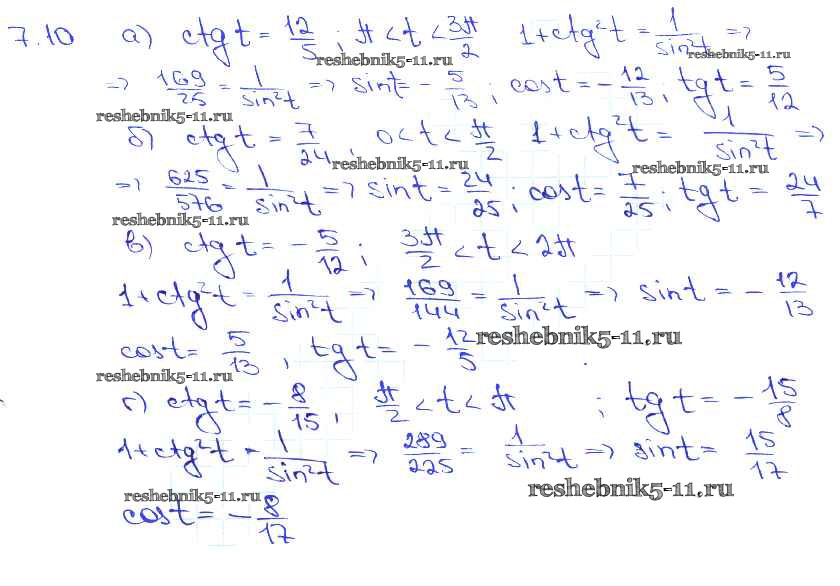 7.10 а) ctg t = 12/5; π < t < 3π/2 1 + ctg²t = 1/sin²t =>
reshebnik5-11.ru reshebnik5-11.ru
=> 169/25 = 1/sin²t => sin t = - 5/13; cos t = - 12/13; tg t = 5/12
reshebnik5-11.ru
б) ctg t = 7/24, 0 < t < π/2 1 + ctg²t = 1/sin²t =>
reshebnik5-11.ru reshebnik5-11.ru
=> 625/576 = 1/sin²t => sin t = 24/25; cos t = 7/25; tg t = 24/7
reshebnik5-11.ru
в) ctg t = - 5/12; 3π/2 < t < 2π
1 + ctg²t = 1/sin²t => 169/144 = 1/sin²t => sin t = - 12/13
cos t = 5/13, tg t = - 12/5 reshebnik5-11.ru
reshebnik5-11.ru
г) ctg t = - 8/15, π/2 < t < π ; tg t = - 15/8
1 + ctg²t = 1/sin²t => 289/225 = 1/sin²t => sin t = 15/17
reshebnik5-11.ru reshebnik5-11.ru
cos t = - 8/17